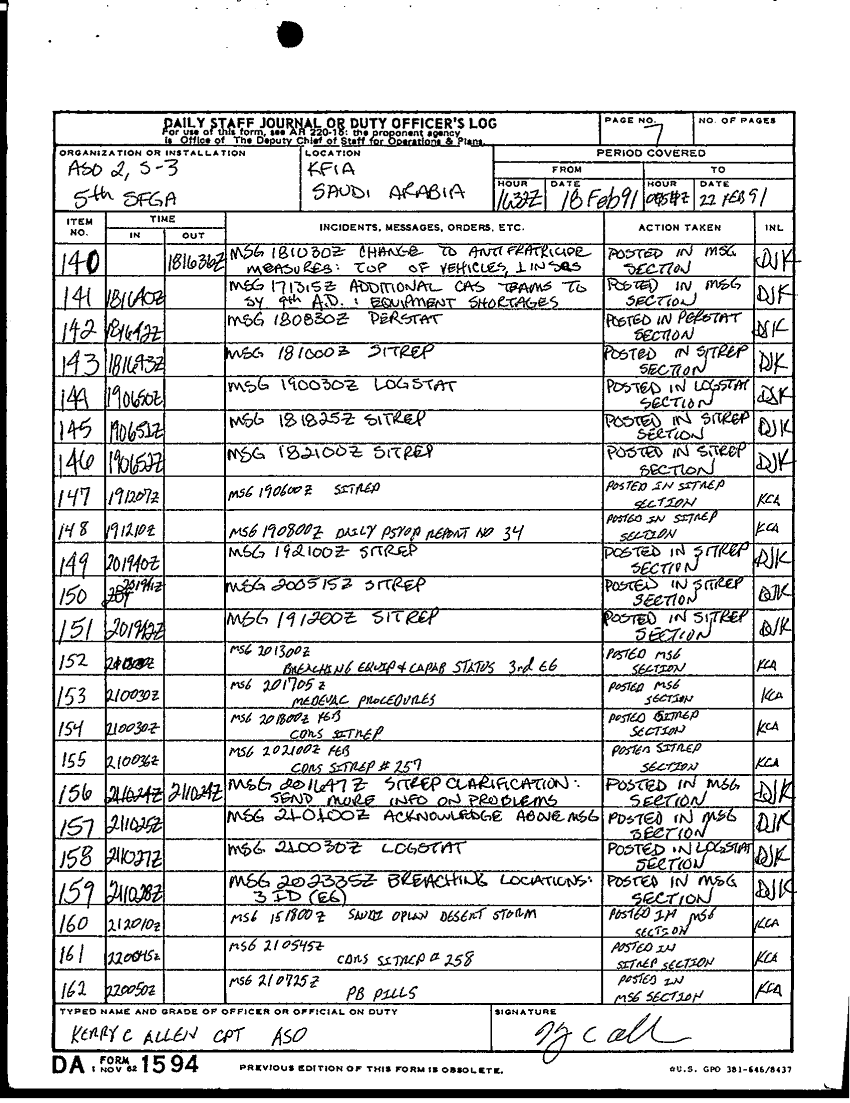 DAILY STAFF JOURNAL OR DUTY OFFICER'S LOG
For use of this form, see AR 220-15; the proponent agency
is Office of The Deputy Chief of Staff for Operations & Plans.
PAGE NO. 7
NO. OF PAGES
ORGANIZATION OR INSTALLATION
ASO 2, S-3
5th SFGA
LOCATION
KFIA
SAUDI ARABIA
PERIOD COVERED
FROM TO
HOUR DATE HOUR DATE
1632Z 18 Feb91 22 FEB 91
ITEM NO. TIME IN OUT INCIDENTS, MESSAGES, ORDERS, ETC. ACTION TAKEN INL
140 181636Z MSG 181030Z CHANGE TO ANTIFRATRICIDE POSTED IN MSG DJK
MEASURES: TOP OF VEHICLES, SECTION
141 181640Z MSG 171315Z ADDITIONAL CAS TEAMS TO POSTED IN MSG DJK
SY 9th A.D.: EQUIPMENT SHORTAGES SECTION
142 181642Z MSG 180830Z PERSTAT POSTED IN PERSTAT DJK
SECTION
143 181643Z MSG 181000Z SITREP POSTED IN SITREP DJK
SECTION
144 190650Z MSG 190030Z LOGSTAT POSTED IN LOGSTAT DJK
SECTION
145 190651Z MSG 181825Z SITREP POSTED IN SITREP DJK
SECTION
146 190652Z MSG 182100Z SITREP POSTED IN SITREP DJK
SECTION
147 191207Z MSG 190600Z SITREP POSTED IN SITREP KCA
SECTION
148 191210Z MSG 190800Z DAILY PSYOP REPORT NO 34 POSTED IN SITREP KCA
SECTION
149 201940Z MSG 192100Z SITREP POSTED IN SITREP DJK
SECTION
150 201941Z MSG 200515Z SITREP POSTED IN SITREP DJK
SECTION
151 201942Z MSG 191200Z SITREP POSTED IN SITREP DJK
SECTION
152 MSG 201300Z POSTED MSG KCA
BREACHING EQUIP & CAPAB STATUS 3rd EG SECTION
153 210030Z MSG 201705Z POSTED MSG KCA
MEDEVAC PROCEDURES SECTION
154 210030Z MSG 201800Z FEB POSTED SITREP KCA
CONS SITREP SECTION
155 210036Z MSG 202100Z FEB POSTED SITREP KCA
CONS SITREP # 257 SECTION
156 211024Z 211024Z MSG 201647Z SITREP CLARIFICATION: POSTED IN MSG DJK
SEND MORE INFO ON PROBLEMS SECTION
157 211025Z MSG 210100Z ACKNOWLEDGE ABOVE MSG POSTED IN MSG DJK
SECTION
158 211027Z MSG 210030Z LOGSTAT POSTED IN LOGSTAT DJK
SECTION
159 211028Z MSG 202335Z BREACHING LOCATIONS: POSTED IN MSG DJK
3 ID (EG) SECTION
160 212010Z MSG 151800Z SAUDI OPLAN DESERT STORM POSTED IN MSG KCA
SECTION
161 220045Z MSG 210545Z POSTED IN KCA
CONS SITREP # 258 SITREP SECTION
162 220050Z MSG 210725Z POSTED IN KCA
PB PILLS MSG SECTION
TYPED NAME AND GRADE OF OFFICER OR OFFICIAL ON DUTY
KERRY C ALLEN CPT ASO
SIGNATURE
DA FORM 1 NOV 62 1594
PREVIOUS EDITION OF THIS FORM IS OBSOLETE.
U.S. GPO 381-646/8437